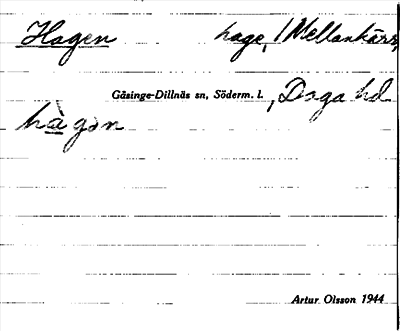 Hagen hage, Mellankärr,
Gåsinge-Dillnäs sn, Söderm. l., Daga hd
hàgən
Artur Olsson 1944